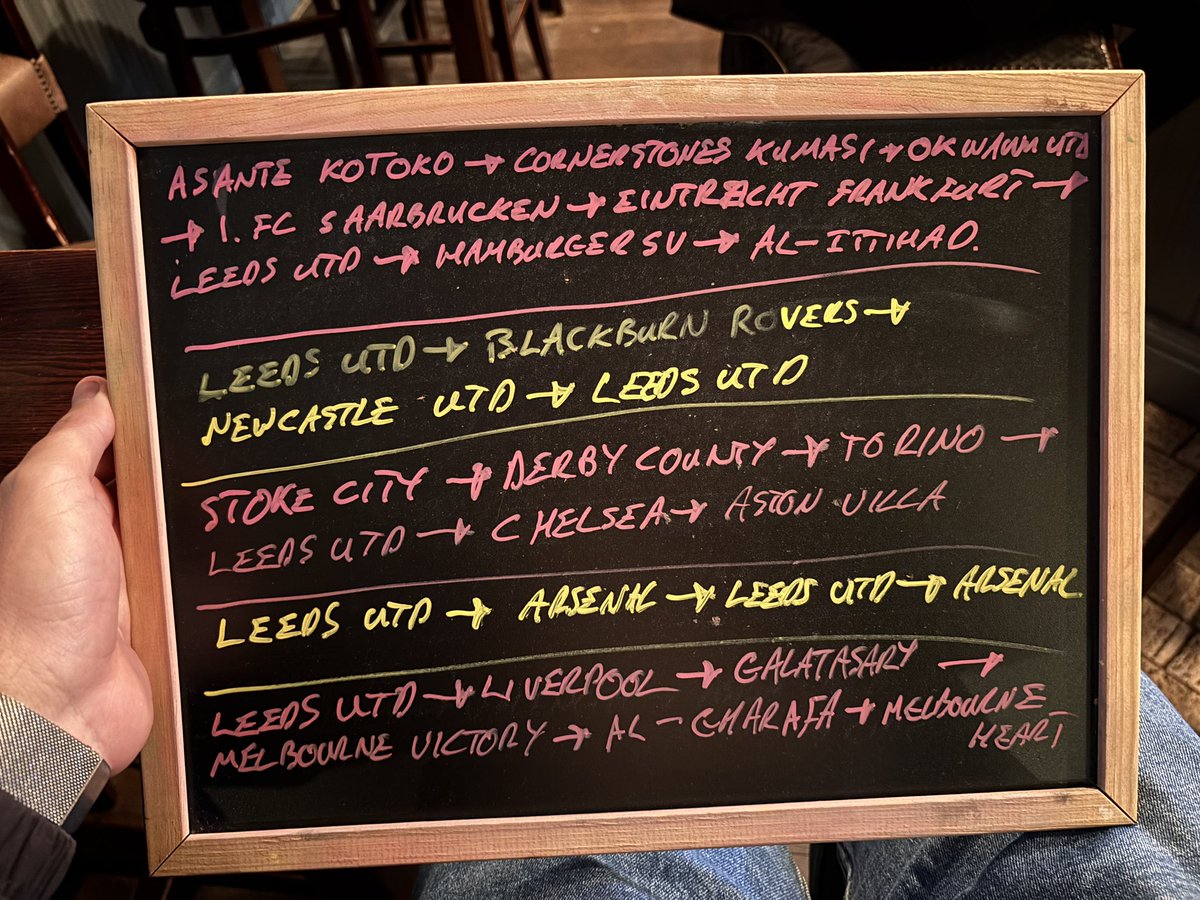 ASANTE KOTOKO → CORNERSTONES KUMASI → OKWAWU UTD
→ 1. FC SAARBRUCKEN → EINTRACHT FRANKFURT →
LEEDS UTD → HAMBURGER SV → AL-ITTIHAD.
LEEDS UTD → BLACKBURN ROVERS →
NEWCASTLE UTD → LEEDS UTD
STOKE CITY → DERBY COUNTY → TORINO →
LEEDS UTD → CHELSEA → ASTON VILLA
LEEDS UTD → ARSENAL → LEEDS UTD → ARSENAL.
LEEDS UTD → LIVERPOOL → GALATASARY →
MELBOURNE VICTORY → AL-GHARAFA → MELBOURNE
HEART